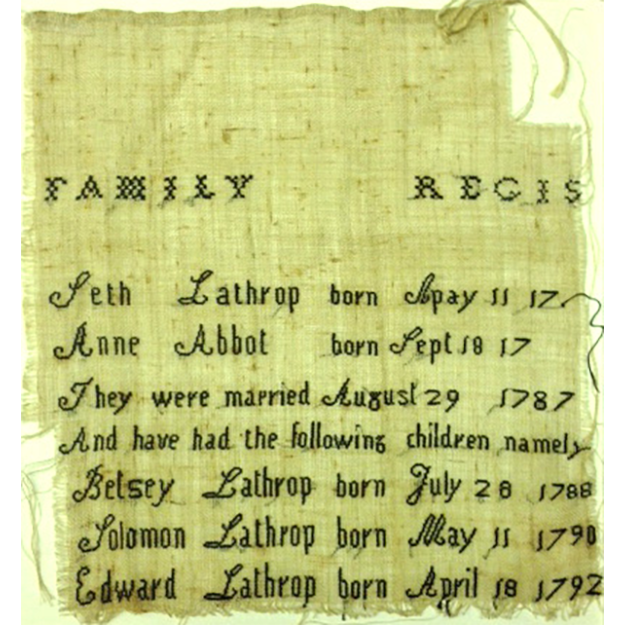 FAMILY REGIS
Seth Lathrop born Apay 11 17
Anne Abbot born Sept 18 17
They were married August 29 1787
And have had the following children namely
Betsey Lathrop born July 28 1788
Solomon Lathrop born May 11 1790
Edward Lathrop born April 18 1792